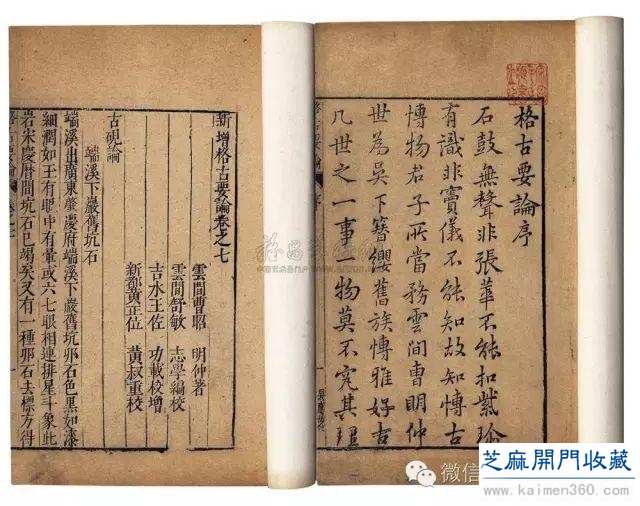 格古要論序
石鼓無聲非張華不能扣紫
有識非竇儀不能知故知博古
博物君子所當務雲間曹明仲
世為吳下簪纓舊族博雅好古
凡世之一事一物莫不究其理
格古要論 序
新增格古要論卷之七
雲間曹昭 明仲著
雲間舒敏 志學編校
吉水王佐 功載校增
新都黃正位 黃叔重校
古硯論
端溪下巖舊坑石
端溪出廣東肇慶府端溪下巖舊坑卵石色黑如漆
細潤如玉有眼中有暈或六七眼相連排星斗象此
岩宋慶曆間坑石已竭矣又有一種卵石去標方得
格古要論
微信
芝麻開門收藏
www.kaimen360.com